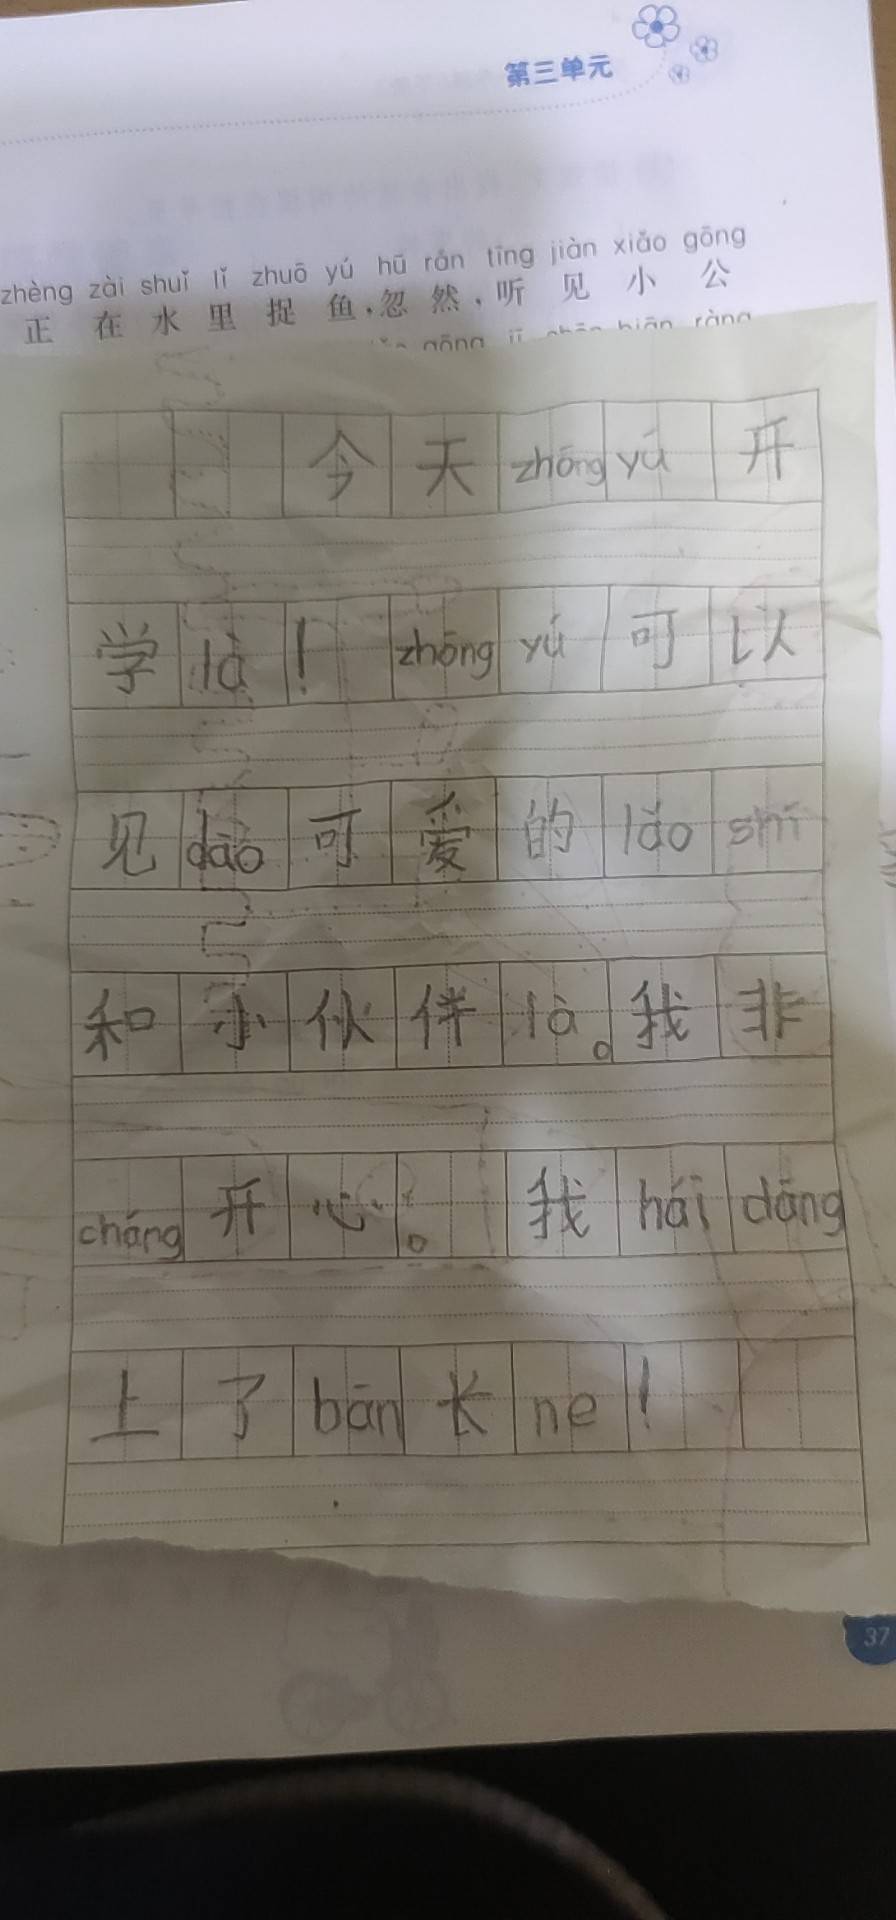 第三单元
zhèng zài shuǐ lǐ zhuō yú hū rán tīng jiàn xiǎo gōng
正在水里捉鱼,忽然,听见小公
今天zhōng yú开
学là!zhōng yú可以
见dào可爱的lǎo shī
和小伙伴là。我非
cháng开心。我hái dāng
上了bān长ne!
37